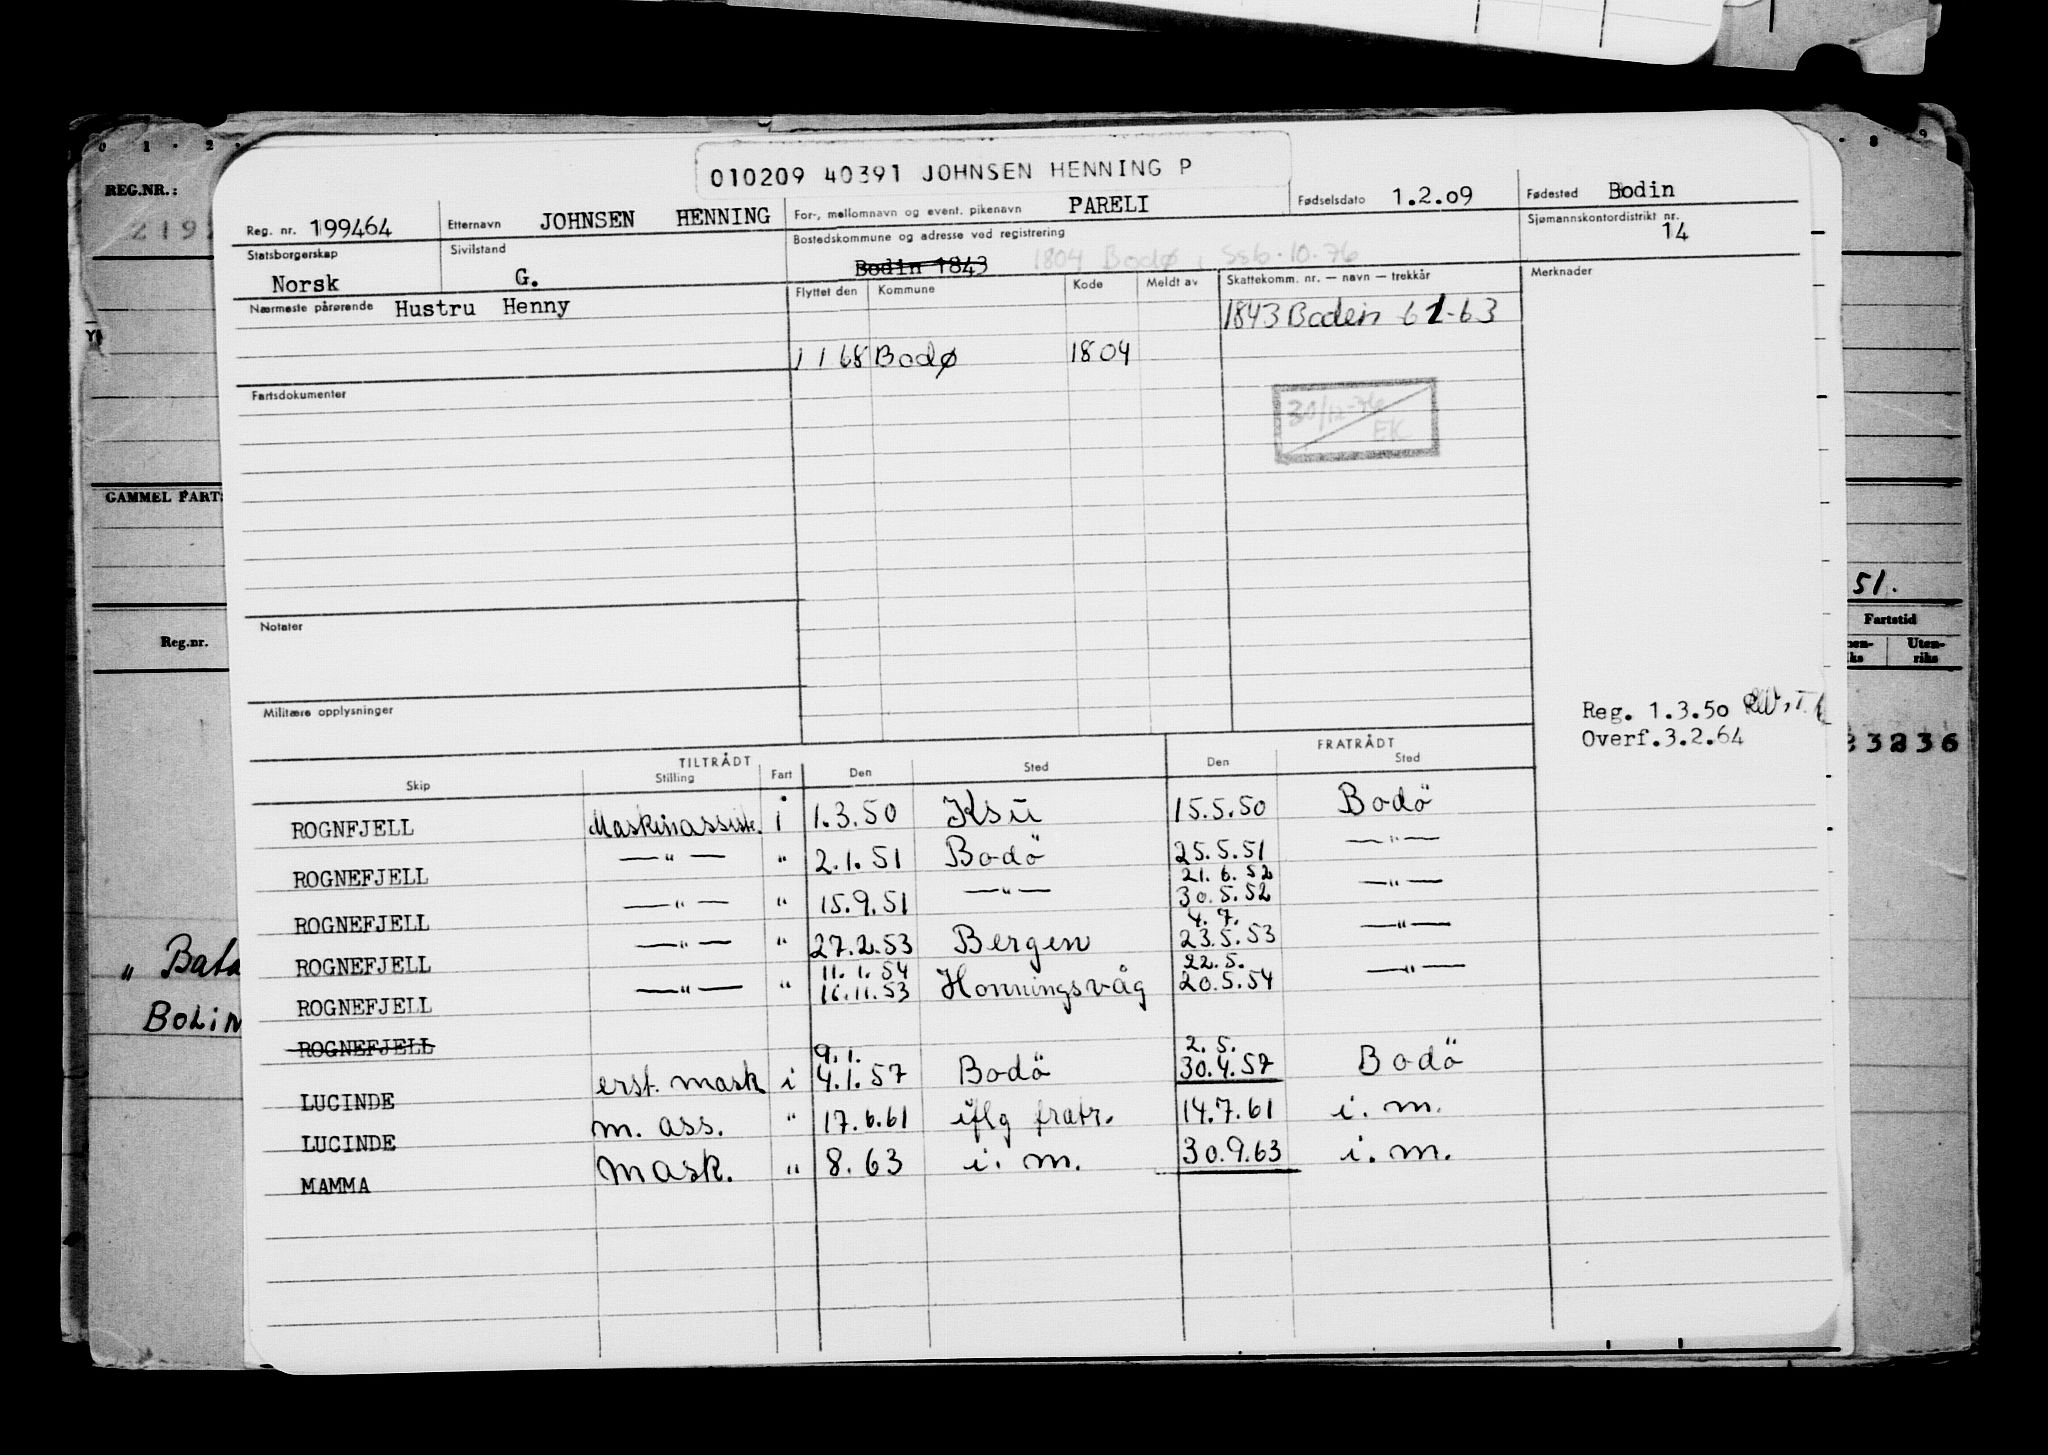 0 1 . 2 .
. 8 . 9
REG.NR.:
010209 40391 JOHNSEN HENNING P
Reg. nr. 199464 Etternavn JOHNSEN HENNING For-, mellomnavn og event. pikenavn PARELI Fødselsdato 1.2.09 Fødested Bodin
Statsborgerskap Norsk Sivilstand G. Bostedskommune og adresse ved registrering Sjømannskontordistrikt nr. 14
Bodin 1843 1804 Bodø i Ssb. 10.76
Nærmeste pårørende Hustru Henny Flyttet den Kommune Kode Meldt av Skattekomm. nr. — navn — trekkår Merknader
1843 Bodin 61-63
1 1 68 Bodø 1804
Fartsdokumenter
30/12-76
EK
GAMMEL FART
51.
Notater
Reg.nr.
Fartstid
Uten-
riks
Militære opplysninger
Reg. 1.3.50
Overf.3.2.64
3236
TILTRÅDT FRATRÅDT
Skip Stilling Fart Den Sted Den Sted
ROGNFJELL Maskinassist. i 1.3.50 Ksu 15.5.50 Bodö
ROGNEFJELL — " — " 2.1.51 Bodö 25.5.51 — " —
21.6.52
ROGNEFJELL — " — " 15.9.51 — " — 30.5.52 — " —
4.7.
ROGNEFJELL — " — " 27.2.53 Bergen 23.5.53 — " —
11.1.54 22.5.
ROGNEFJELL — " — " 16.11.53 Honningsvåg 20.5.54 — " —
ROGNEFJELL
9.1. 2.5.
LUCINDE erst. mask i 4.1.57 Bodö 30.4.57 Bodö
LUCINDE m. ass. " 17.6.61 iflg fratr. 14.7.61 i. m.
MAMMA mask. " 8.63 i. m. 30.9.63 i. m.
" Bata
Bolin